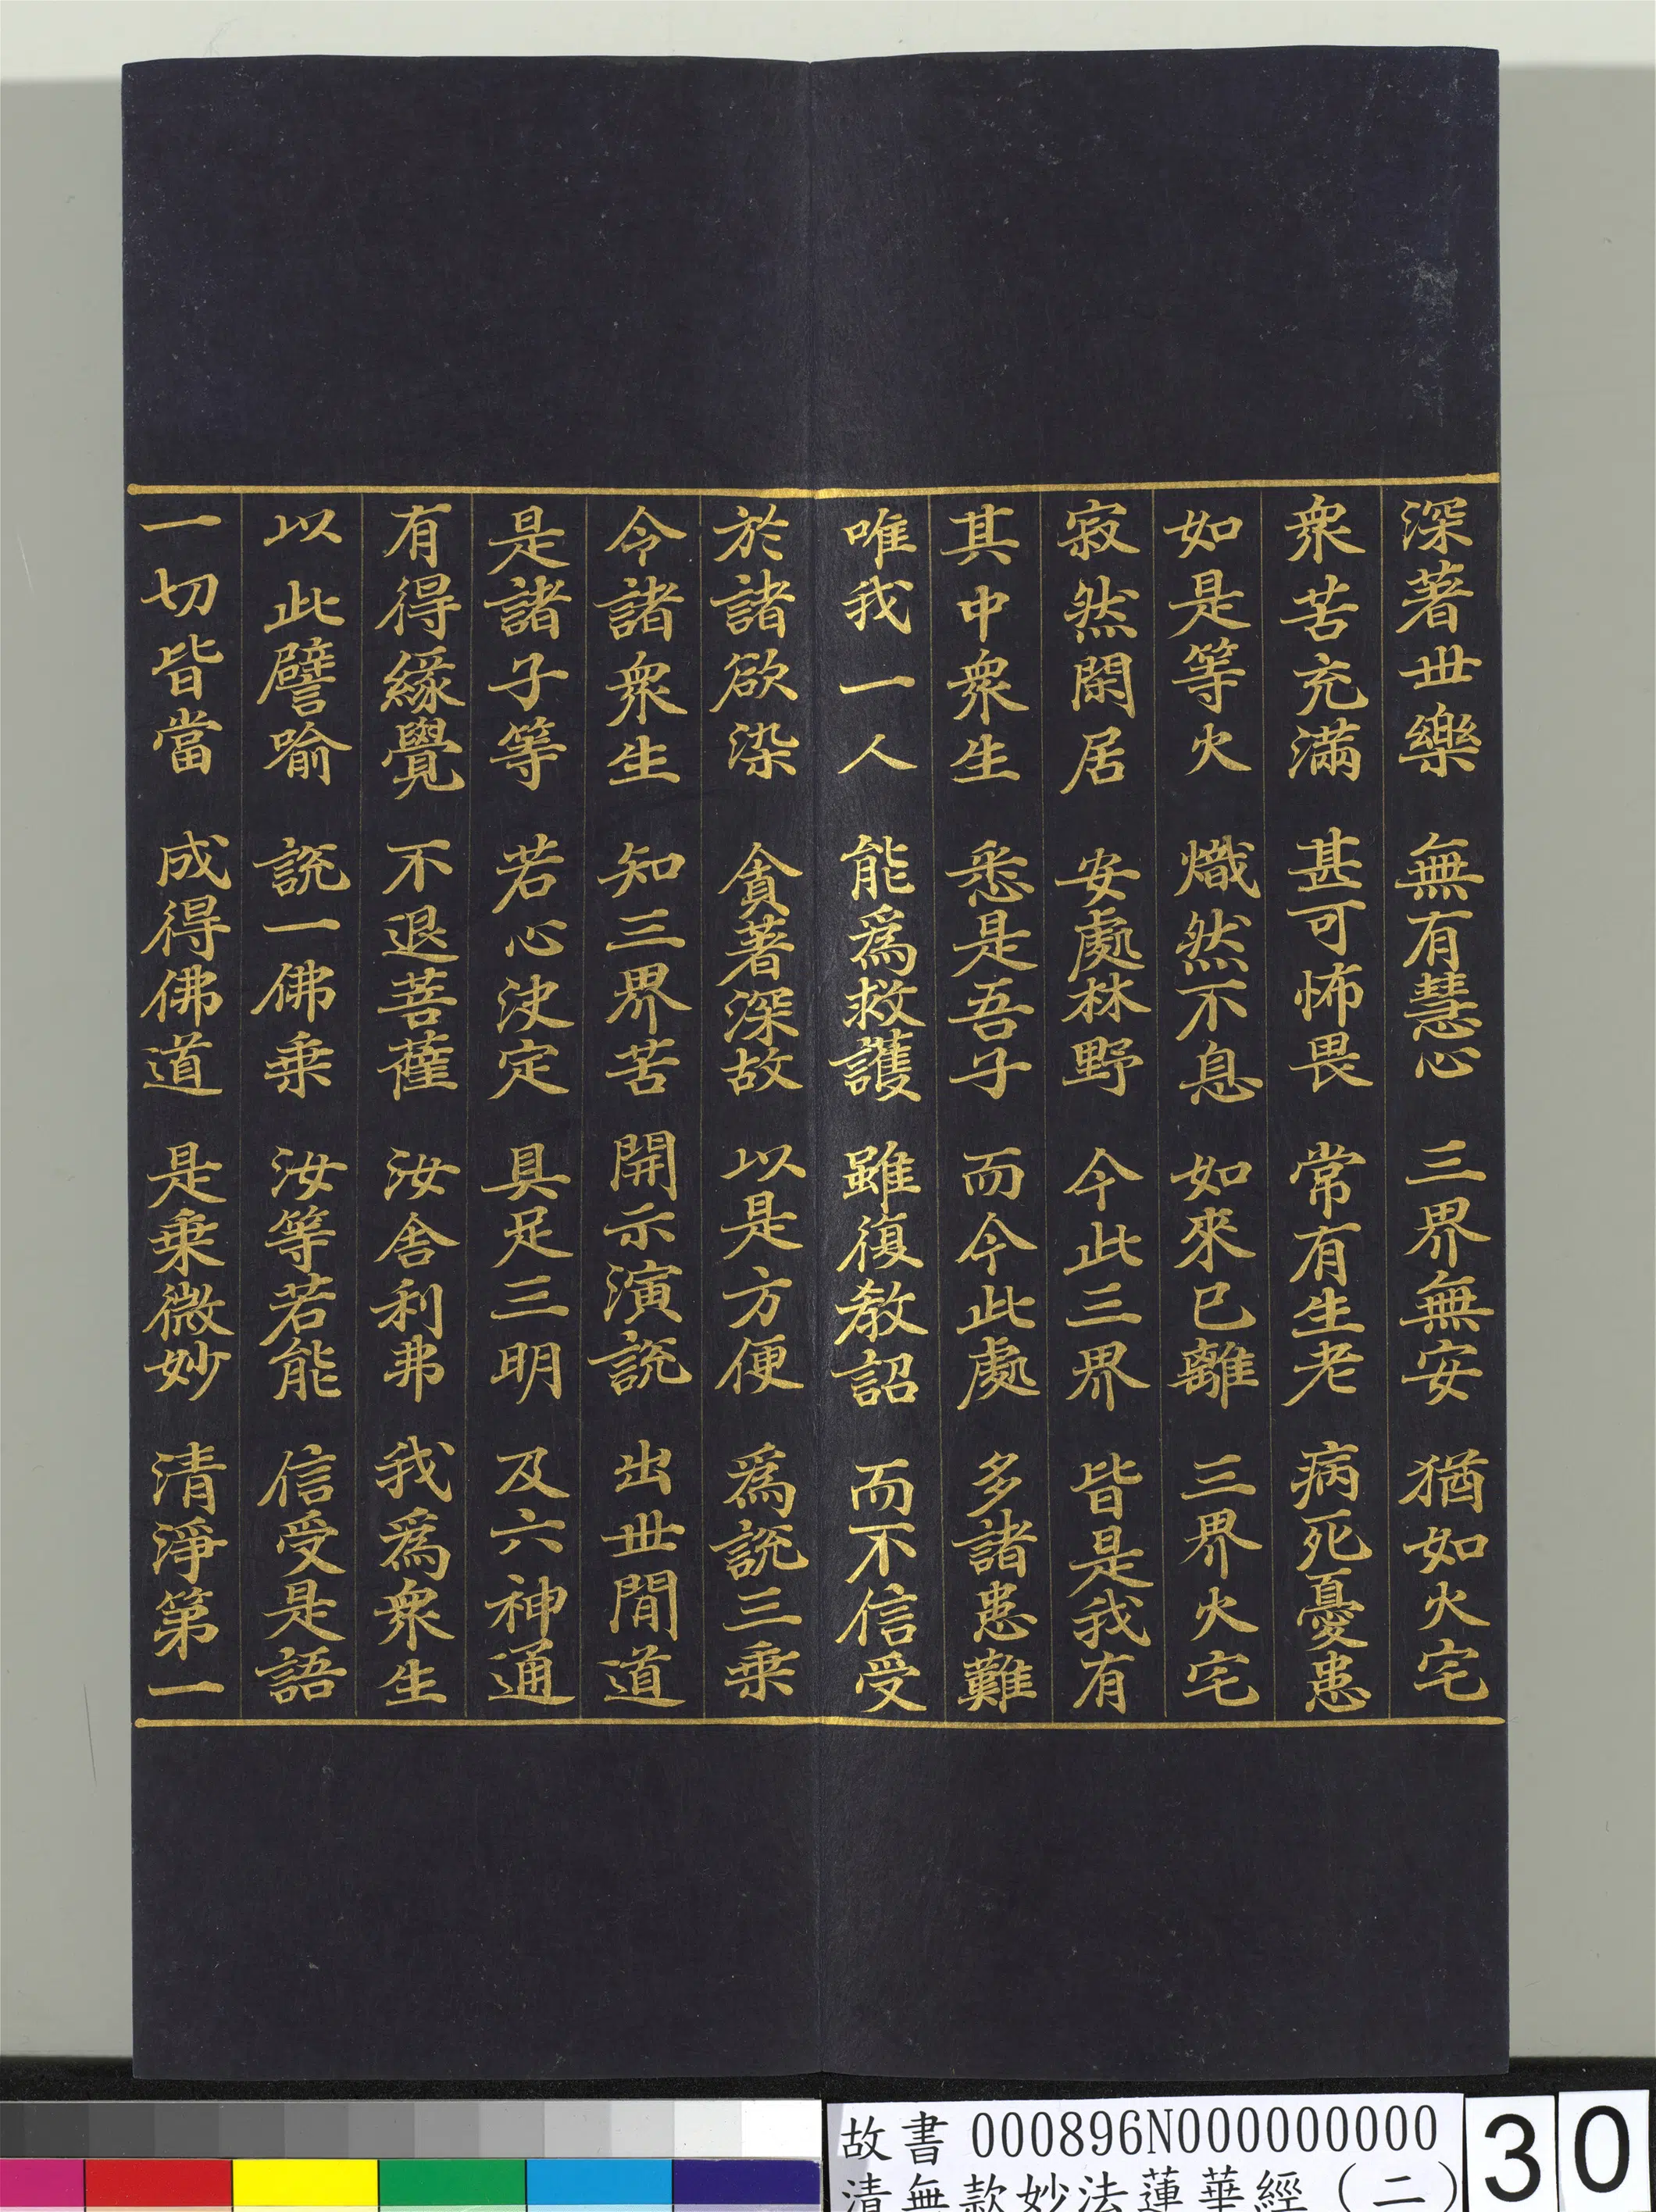 深著世樂 無有慧心 三界無安 猶如火宅
衆苦充滿 甚可怖畏 常有生老 病死憂患
如是等火 熾然不息 如來已離 三界火宅
寂然閑居 安處林野 今此三界 皆是我有
其中衆生 悉是吾子 而今此處 多諸患難
唯我一人 能爲救護 雖復教詔 而不信受
於諸欲染 貪著深故 以是方便 爲說三乘
令諸衆生 知三界苦 開示演說 出世間道
是諸子等 若心決定 具足三明 及六神通
有得緣覺 不退菩薩 汝舍利弗 我爲衆生
以此譬喻 說一佛乘 汝等若能 信受是語
一切皆當 成得佛道 是乘微妙 清淨第一
故書 000896N000000000
清無款妙法蓮華經（二）
30